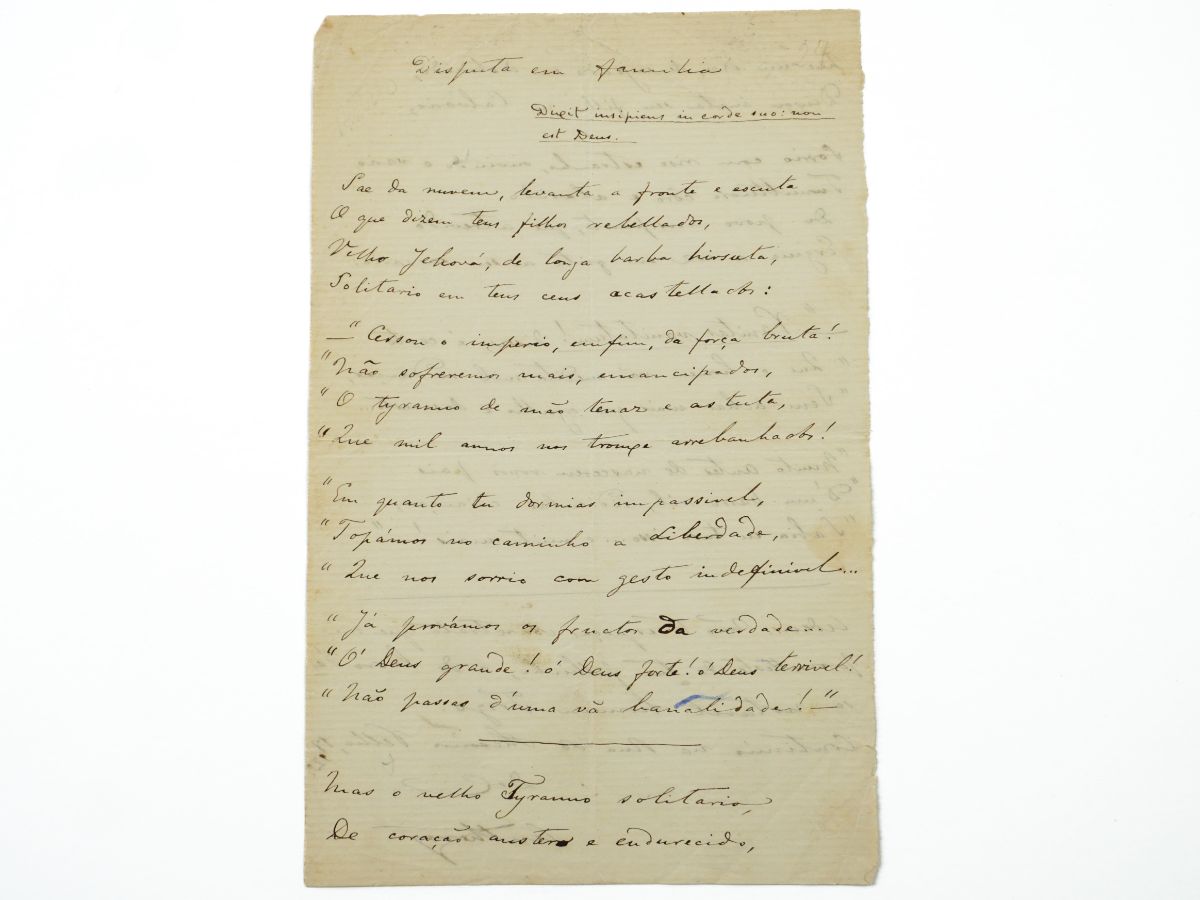 Disputa em familia
Dixit insipiens in corde suo: non
est Deus.
Sae da nuvem, levanta a fronte e escuta
O que dizem teus filhos rebellados,
Velho Jehová, de longa barba hirsuta,
Solitario em teus ceus acastellados:
—"Cessou o imperio, emfim, da força bruta!
"Não sofreremos mais, emancipados,
"O tyranno de mão tenaz e astuta,
"Que mil annos nos trouxe arrebanhados!
"Em quanto tu dormias impassivel,
"Topámos no caminho a Liberdade,
"Que nos sorrio com gesto indefinivel...
"Já provámos os fructos da verdade...
"Ó Deus grande! ó Deus forte! ó Deus terrivel!
"Não passas d'uma vã banalidade!—"
Mas o velho Tyranno solitario,
De coração austero e endurecido,